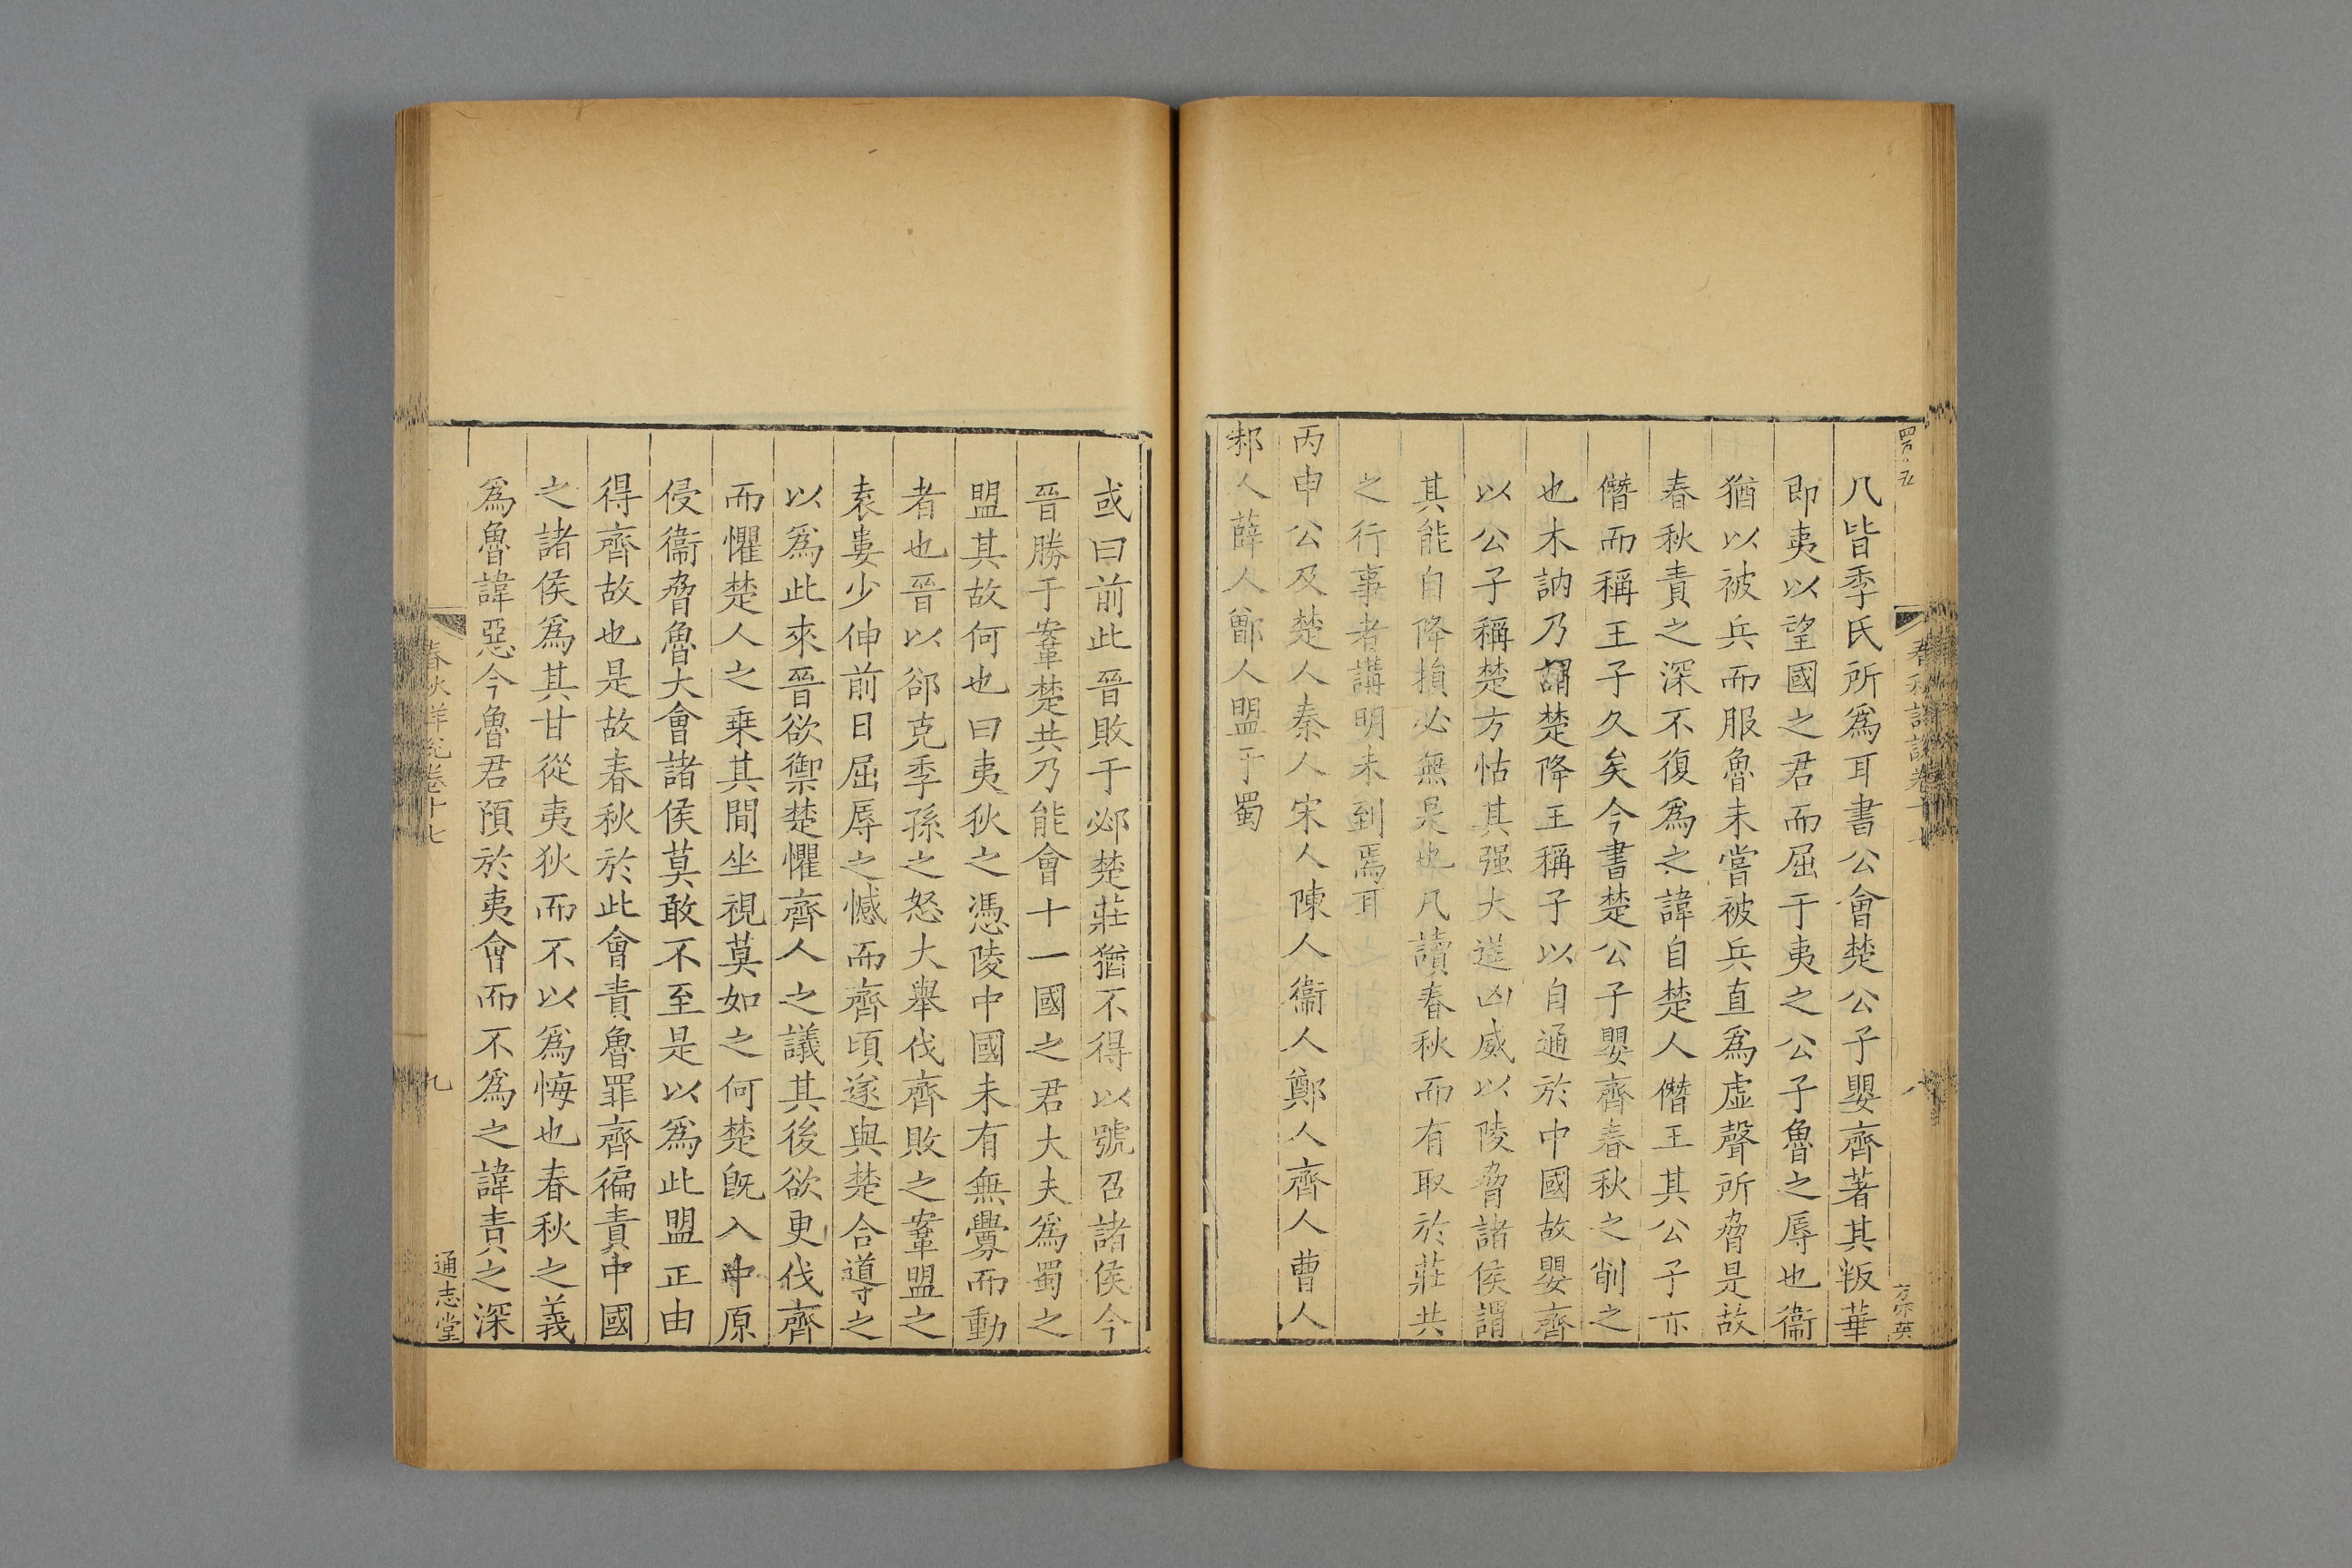 凡皆季氏所爲耳書公會楚公子嬰齊著其叛華
即夷以望國之君而屈于夷之公子魯之辱也衞
猶以被兵而服魯未嘗被兵直爲虛聲所脅是故
春秋責之深不復爲之諱自楚人僭王其公子亦
僭而稱王子久矣今書楚公子嬰齊春秋之削之
也木訥乃謂楚降王稱子以自通於中國故嬰齊
以公子稱楚方怙其强大逞凶威以陵脅諸侯謂
其能自降損必無是也凡讀春秋而有取於莊共
之行事者講明未到焉耳
丙申公及楚人秦人宋人陳人衞人鄭人齊人曹人
邾人薛人鄫人盟于蜀
方宗英
或曰前此晉敗于邲楚莊猶不得以號召諸侯今
晉勝于鞌楚共乃能會十一國之君大夫爲蜀之
盟其故何也曰夷狄之憑陵中國未有無釁而動
者也晉以郤克季孫之怒大舉伐齊敗之鞌盟之
袁婁少伸前日屈辱之憾而齊頃遂與楚合導之
以爲此來晉欲禦楚懼齊人之議其後欲更伐齊
而懼楚人之乗其間坐視莫如之何楚旣入中原
侵衞脅魯大會諸侯莫敢不至是以爲此盟正由
得齊故也是故春秋於此會責魯罪齊徧責中國
之諸侯爲其甘從夷狄而不以爲悔也春秋之義
爲魯諱惡今魯君預於夷會而不爲之諱責之深
春秋詳說卷十七
九
通志堂